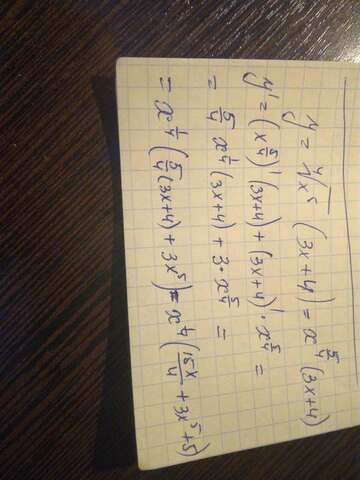 y = ⁴√x⁵ (3x+4) = x^(5/4) (3x+4)
y' = (x^(5/4))' (3x+4) + (3x+4)' · x^(5/4) =
= 5/4 x^(1/4) (3x+4) + 3 · x^(5/4) =
= x^(1/4) (5/4 (3x+4) + 3x⁵) = x^(1/4) (15x/4 + 3x⁵ + 5)